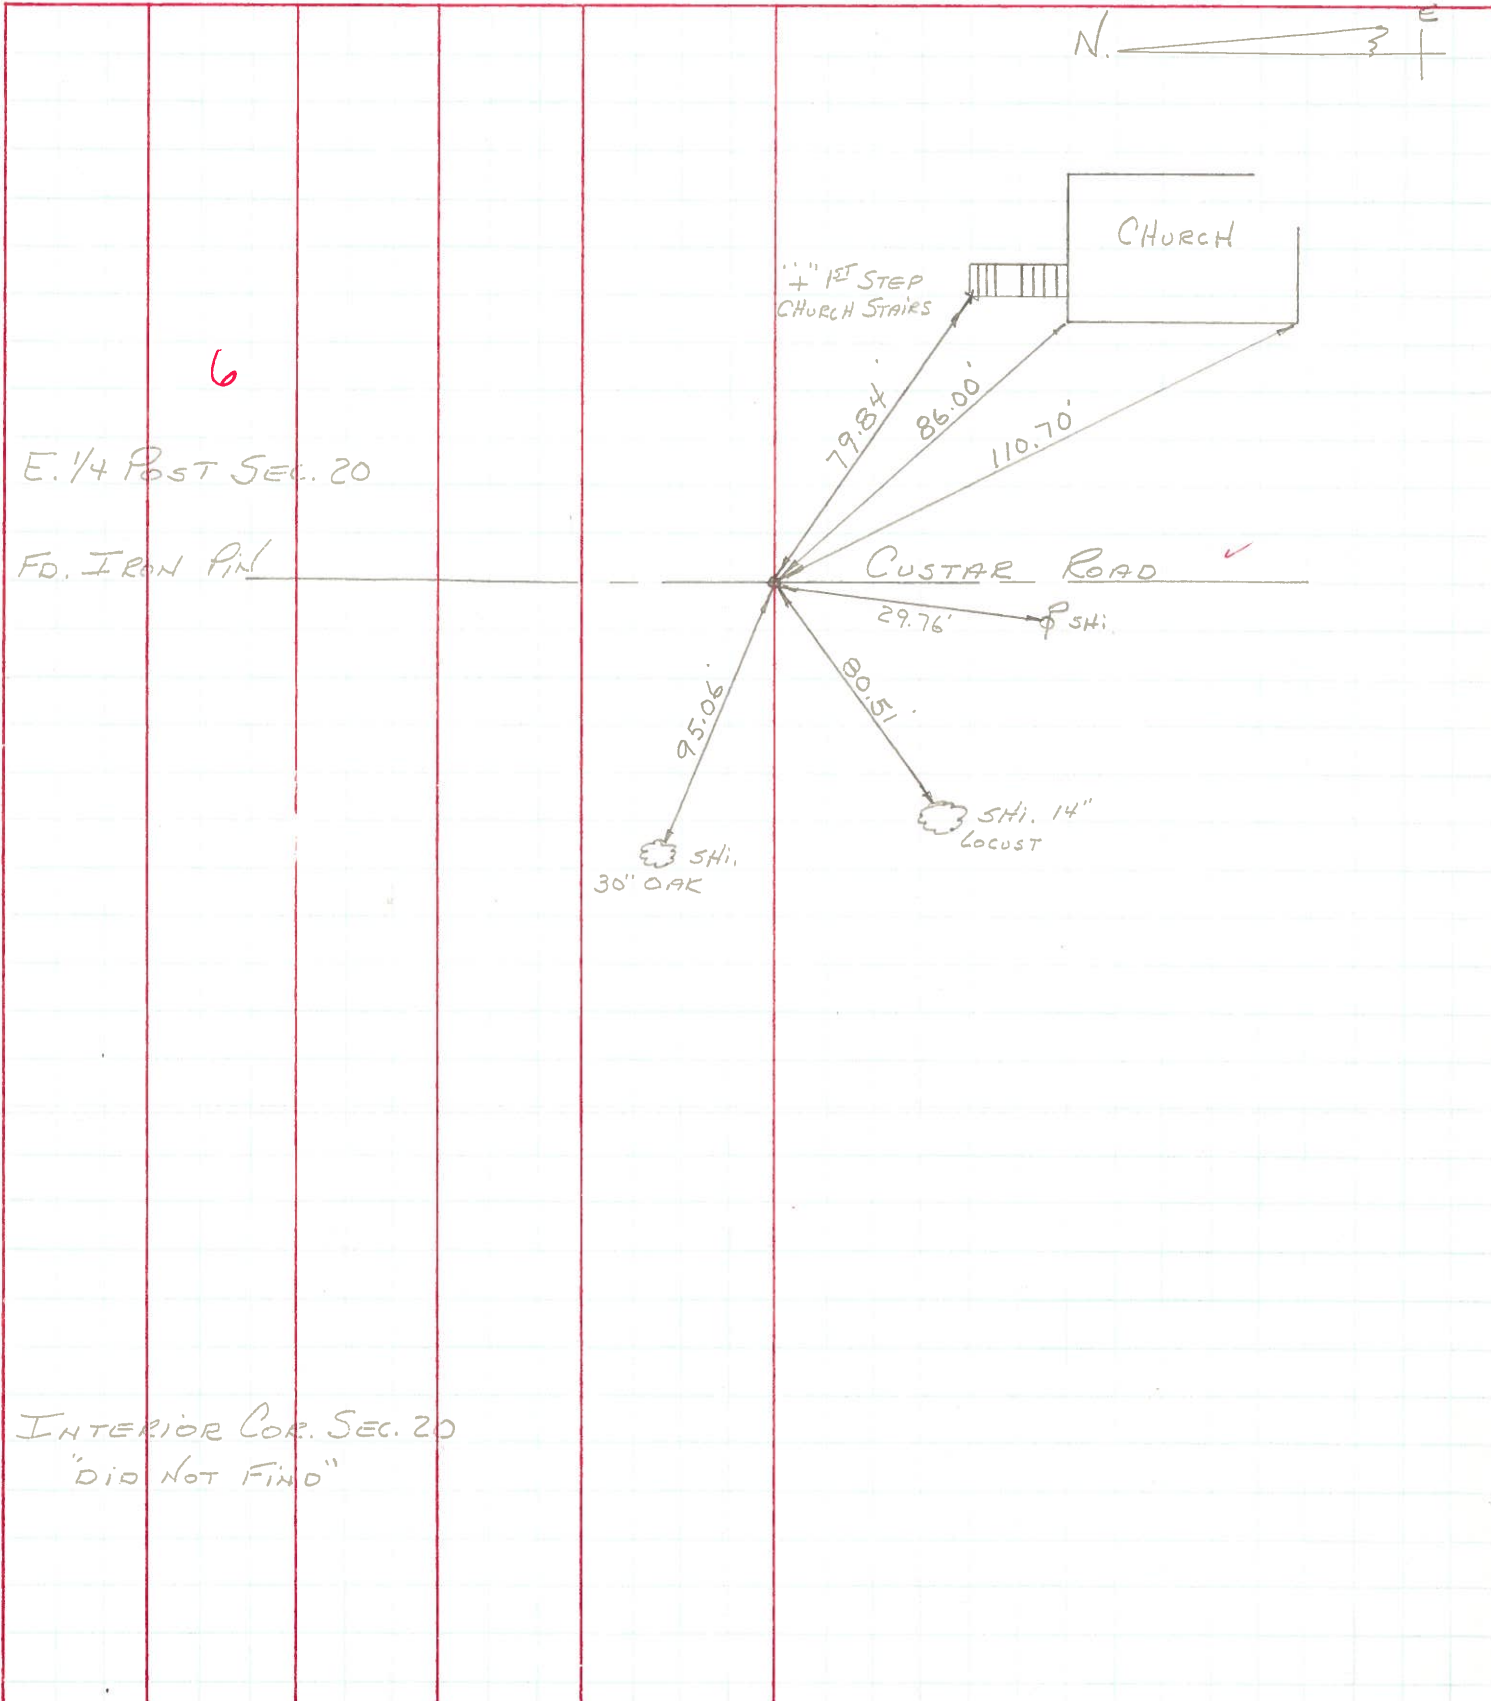 E
N.
CHURCH
"+" 1ST STEP
CHURCH STAIRS
6
79.84'
86.00'
110.70'
E. 1/4 POST SEC. 20
FD. IRON PIN
CUSTAR ROAD
29.76'
SHI.
95.06'
80.51'
SHI. 14"
LOCUST
SHI.
30" OAK
INTERIOR COR. SEC. 20
"DID NOT FIND"